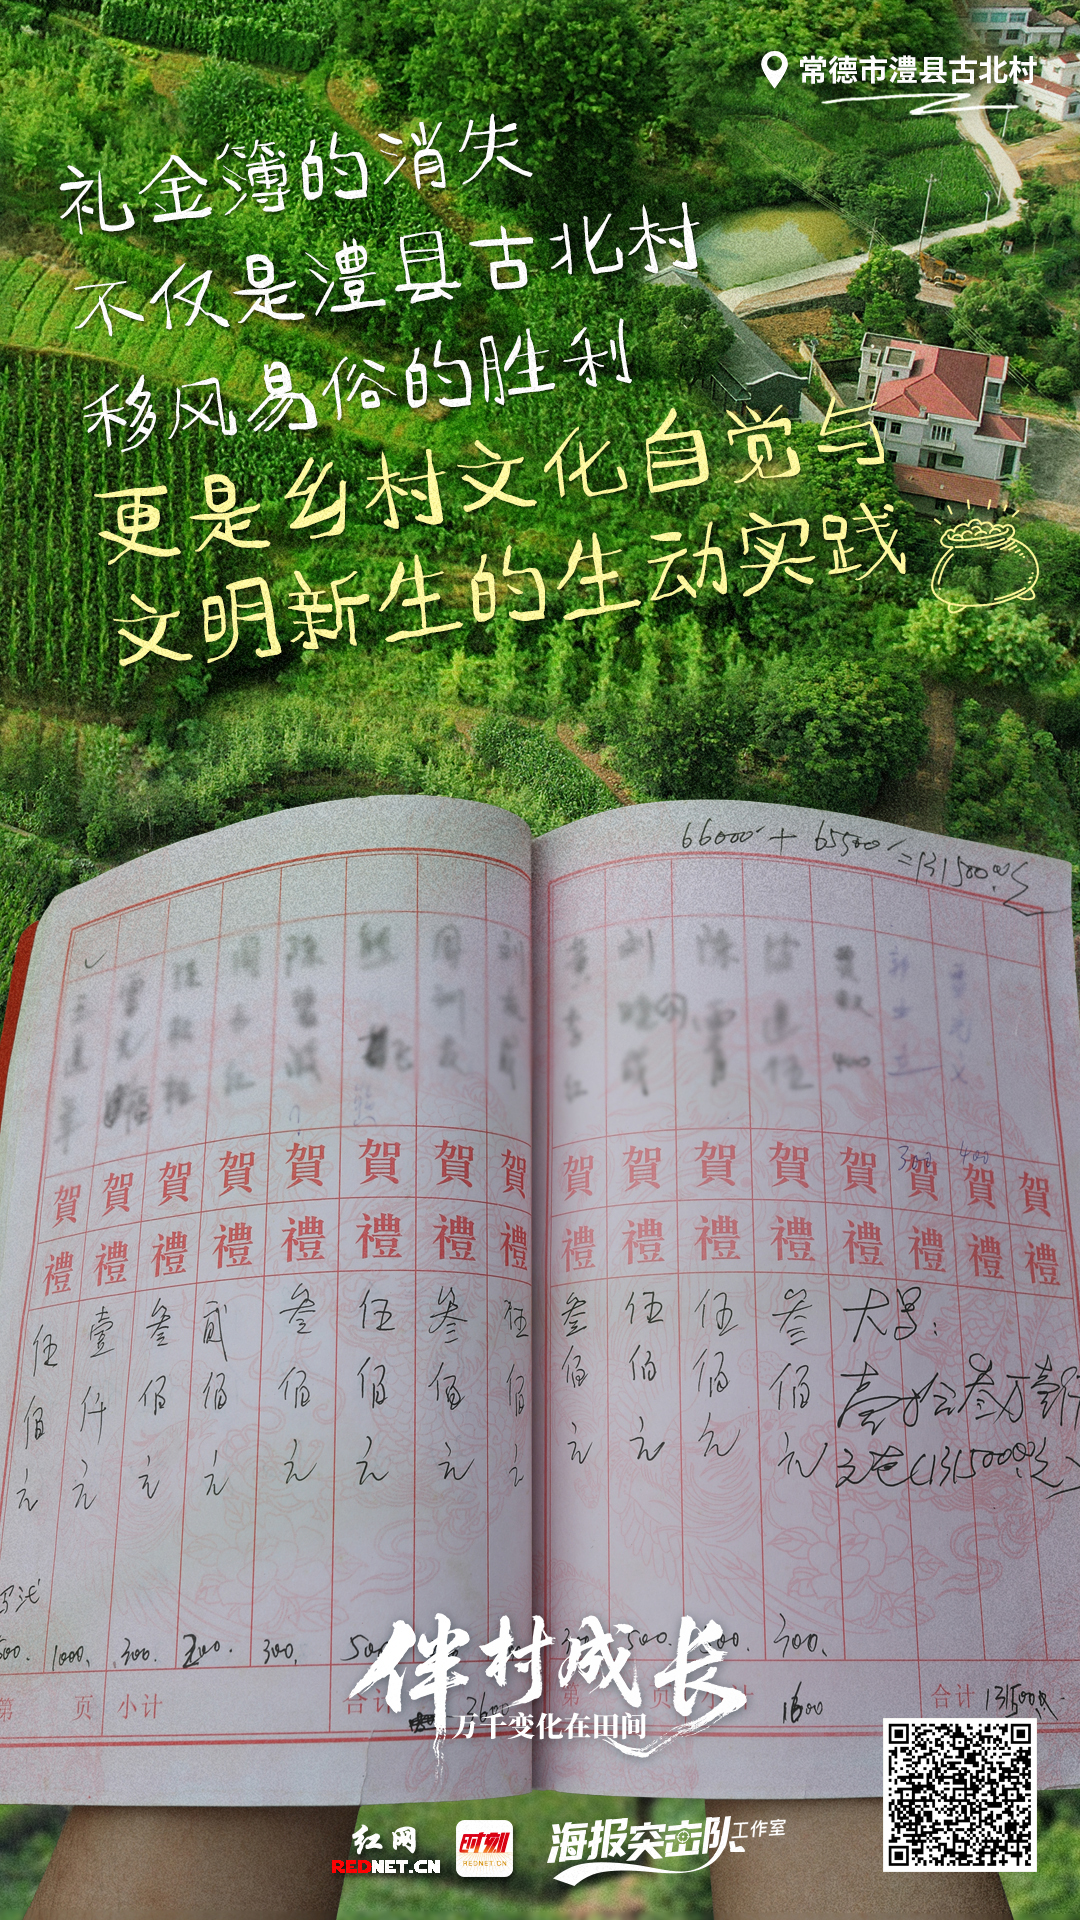 常德市澧县古北村
礼金簿的消失
不仅是澧县古北村
移风易俗的胜利
更是乡村文化自觉与
文明新生的生动实践
66000 + 65500 = 131500元
賀 賀 賀 賀 賀 賀 賀 賀 賀 賀 賀 賀 賀 賀 賀 賀
300 400
禮 禮 禮 禮 禮 禮 禮 禮 禮 禮 禮 禮 禮 禮 禮 禮
伍佰元 壹仟元 叁佰元 贰佰元 叁佰元 伍佰元 叁佰元 伍佰元 叁佰元 伍佰元 伍佰元 叁佰元
大写:
壹拾叁万壹仟
1000. 300. 200. 300. 300.
第 页 小计 合计 3600 第 页 小计 1600 合计 131500
伴村成长
万千变化在田间
红网
REDNET.CN
时刻
REDNET.CN
海报突击队工作室